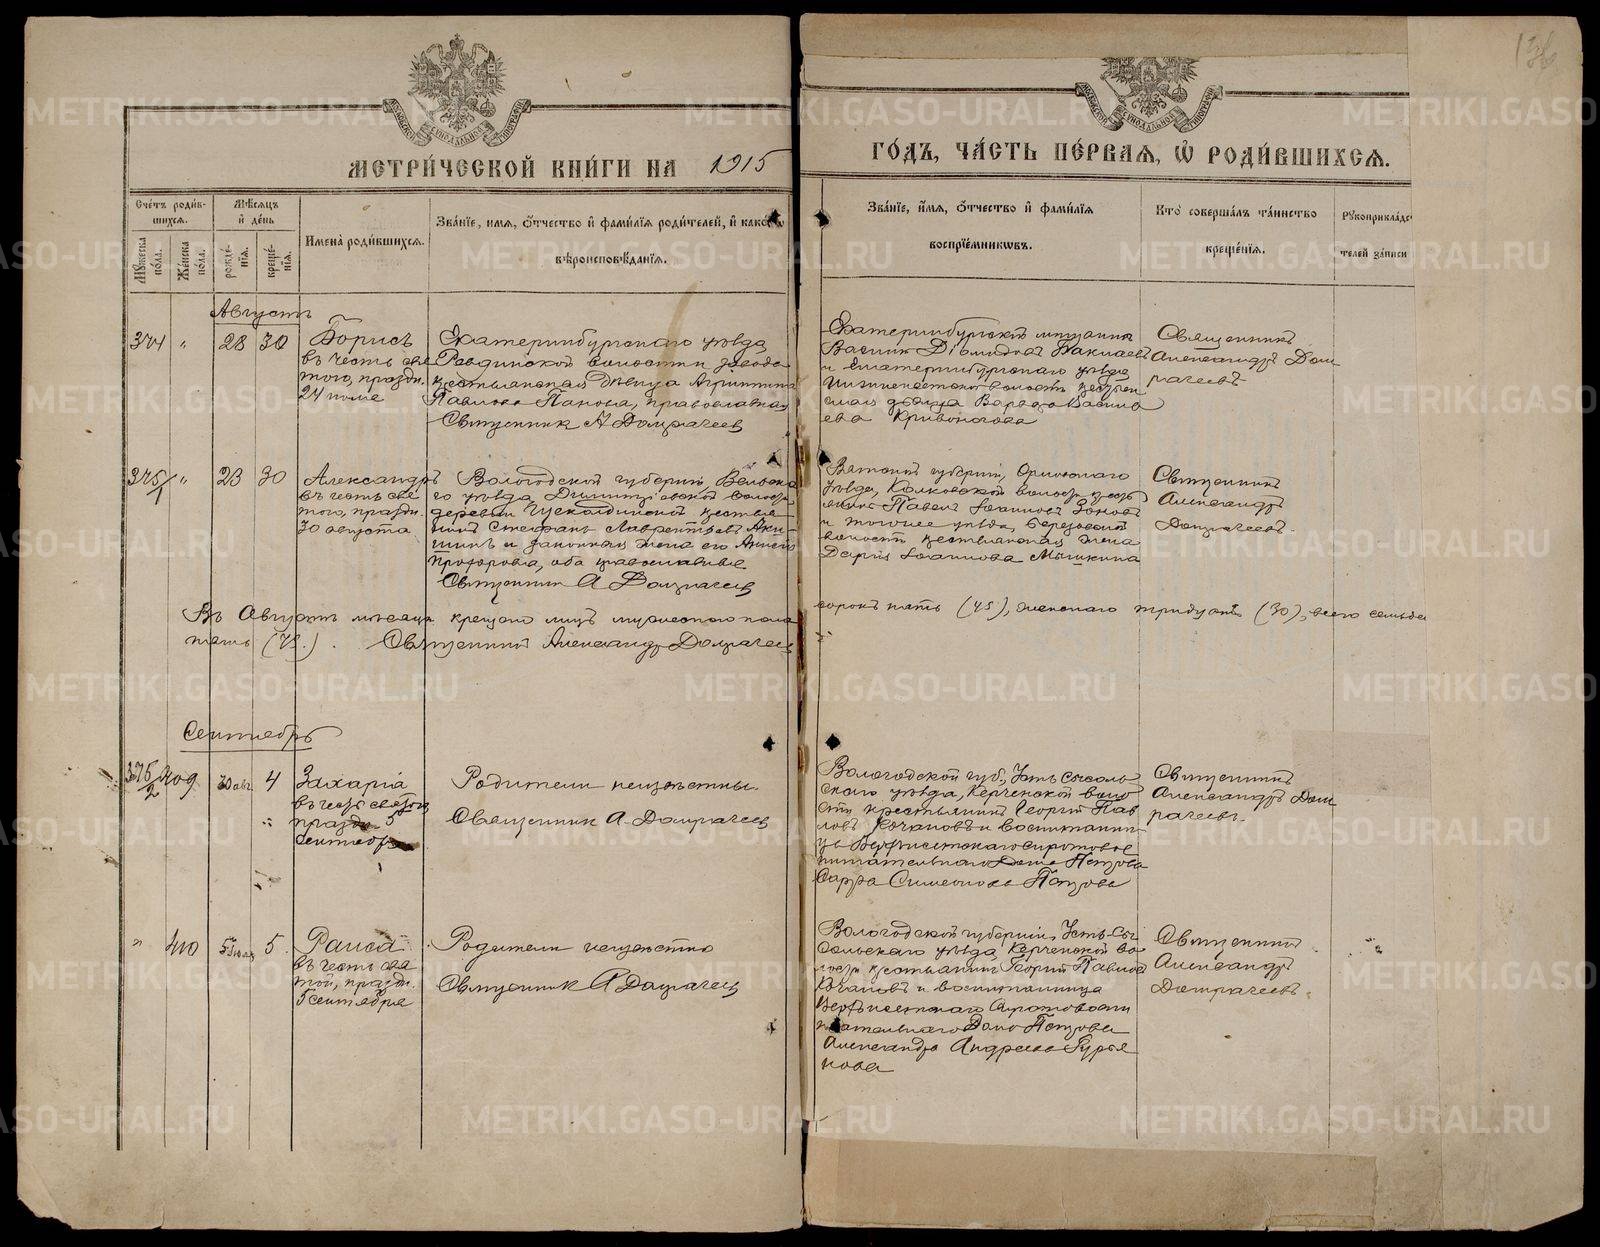 136
МЕТРИ́ЧЕСКОЙ КНИ́ГИ НА 1915
ГО́ДЪ, ЧА́СТЬ ПЕ́РВАЯ, Ѡ РОДИ́ВШИХСЯ.
Сче́тъ роди́в-
шихся.
Мꙋжеска
по́ла.
Же́нска
по́ла.
Мѣ́сяцъ
и́ де́нь
рожде́-
нїя.
креще́-
нїя.
Имена̀ роди́вшихся.
Зва́нїе, и́мя, ѻ́тчество и́ фами́лїя роди́телей, и́ како́гѡ
вѣроисповѣ́данїя.
Зва́нїе, и́мя, ѻ́тчество и́ фами́лїя
воспрїе́мникѡвъ.
Кто̀ соверша́лъ та́инство
креще́нїя.
Рꙋкоприкла́дс
телей за́писи
Августъ
374 " 28 30
Борисъ
въ честь свя
того, праздн.
24 июле
Екатеринбургскаго уѣзда
Ревдинской волости и завода
крестьянская дѣвица Агриппина
Павлова Панова, православная
Священник А Домрачеев
Екатеринбургскій мѣщанинъ
Василий Діомидовъ
и Екатеринбургскаго уѣзда
волости крестьян
ская дѣвица Варвара Василь
ева Кривоногова
Священникъ
Александръ Дом
рачеевъ
375/1 " 23 30
Александръ
въ честь свя
того, праздн.
30 августа
Вологодской губерніи, Вельска
го уѣзда, волости
деревни крестья
нинъ Стефанъ Лаврентьевъ Аки-
шинъ и законная жена его
оба православные
Священник А Домрачеев
Вятской губерніи, Орловскаго
уѣзда, волости кресть
янинъ Павелъ Іоанновъ Зоновъ
и того же уѣзда, Березовской
волости крестьянская жена
Дарія Іоаннова Мышкина
Священникъ
Александръ
Домрачеевъ.
Въ Августѣ мѣсяцѣ крещено лицъ мужескаго пола
сорокъ пять (45), женскаго тридцать (30), всего семьде
пять (75). Священникъ Александръ Домрачеев
Сентябрь
376/2 409 30 авг. 4
Захарія
въ честь святого
праздн. 5
Сентября
Родители неизвѣстны.
Священник А. Домрачеев
Вологодской губ., Усть Сысоль-
скаго уѣзда, Керченской воло
сти крестьянинъ Георгій Пав
ловъ Качановъ и воспитанни-
ца Верхисетскаго сиротовос
питательнаго Дома Петрова
Сарра Симеонова Петрова
Священникъ
Александръ Дом
рачеевъ.
" 410 5 5.
Раиса
въ честь свя
той, праздн.
5 сентября
Родители неизвѣстны
Священник А Домрачеев
Вологодской губерніи, Усть-Сы
сольскаго уѣзда, Керченской во
лости крестьянинъ Георгій Павлов
Качановъ и воспитанница
Верхисетскаго Сиротовоспи
тательнаго Дома Петрова
Александра Андреева Гурья
нова
Священникъ
Александръ
Домрачеевъ.
METRIKI.GASO-URAL.RU